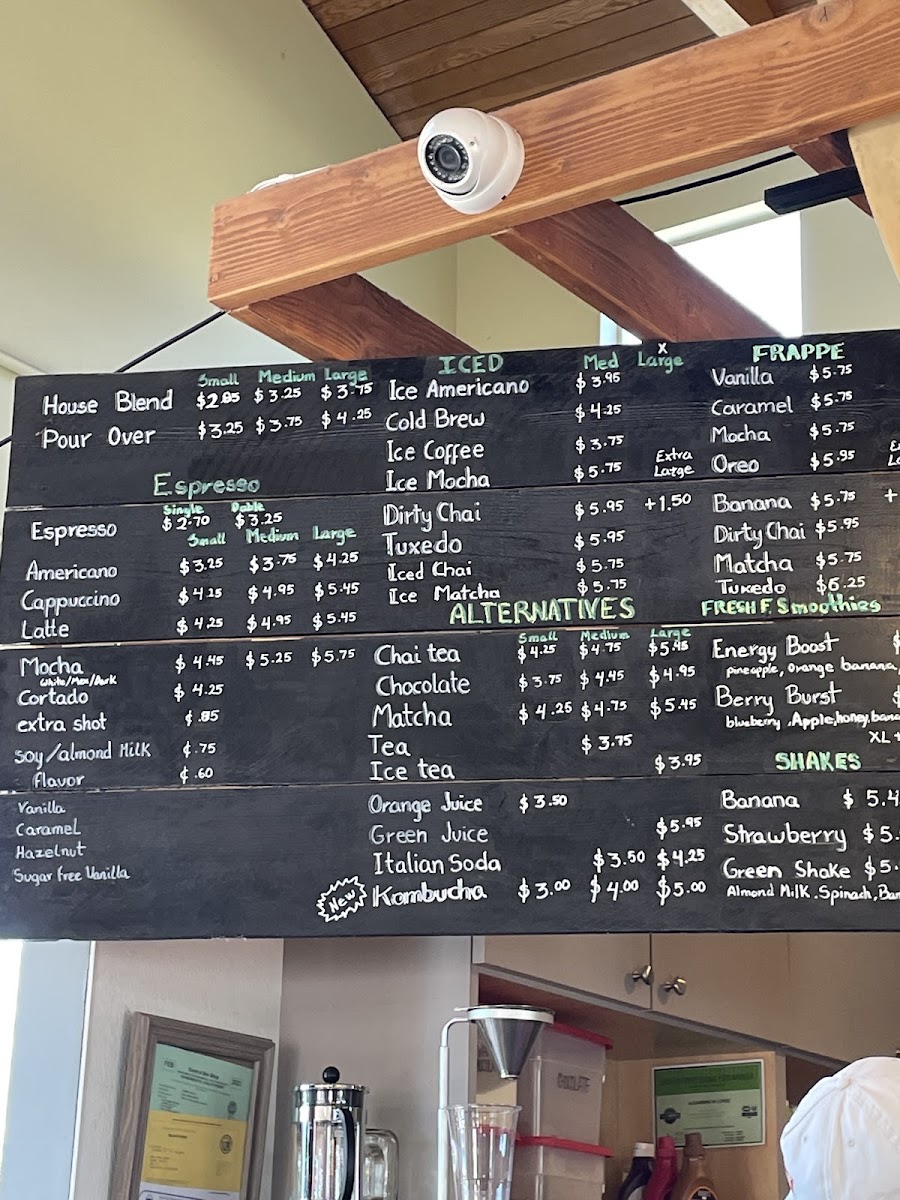 Small Medium Large
House Blend $2.85 $3.25 $3.75
Pour Over $3.25 $3.75 $4.25
Espresso
Single Doble
Espresso $2.70 $3.25
Small Medium Large
Americano $3.25 $3.75 $4.25
Cappuccino $4.25 $4.95 $5.45
Latte $4.25 $4.95 $5.45
Mocha $4.45 $5.25 $5.75
White/Mex/Dark
Cortado $4.25
extra shot ¢.85
soy/almond Milk ¢.75
flavor ¢.60
Vanilla
Caramel
Hazelnut
Sugar Free Vanilla
ICED Med X Large
Ice Americano $3.95
Cold Brew $4.25
Ice Coffee $3.75
Ice Mocha $5.75 Extra Large
Dirty Chai $5.95 +1.50
Tuxedo $5.95
Iced Chai $5.75
Ice Matcha $5.75
ALTERNATIVES
Small Medium Large
Chai tea $4.25 $4.75 $5.45
Chocolate $3.75 $4.45 $4.95
Matcha $4.25 $4.75 $5.45
Tea $3.75
Ice tea $3.95
Orange Juice $3.50
Green Juice $5.95
Italian Soda $3.50 $4.25
New Kombucha $3.00 $4.00 $5.00
FRAPPE
Vanilla $5.75
Caramel $5.75
Mocha $5.75
Oreo $5.95
Banana $5.75 +
Dirty Chai $5.95
Matcha $5.75
Tuxedo $6.25
FRESH F. Smoothies
Energy Boost $
pineapple, orange banana,
Berry Burst $
blueberry .Apple,honey,bana
XL +
SHAKES
Banana $5.4
Strawberry $5.
Green Shake $5.
Almond Milk .Spinach, Ban
CHOCOLATE